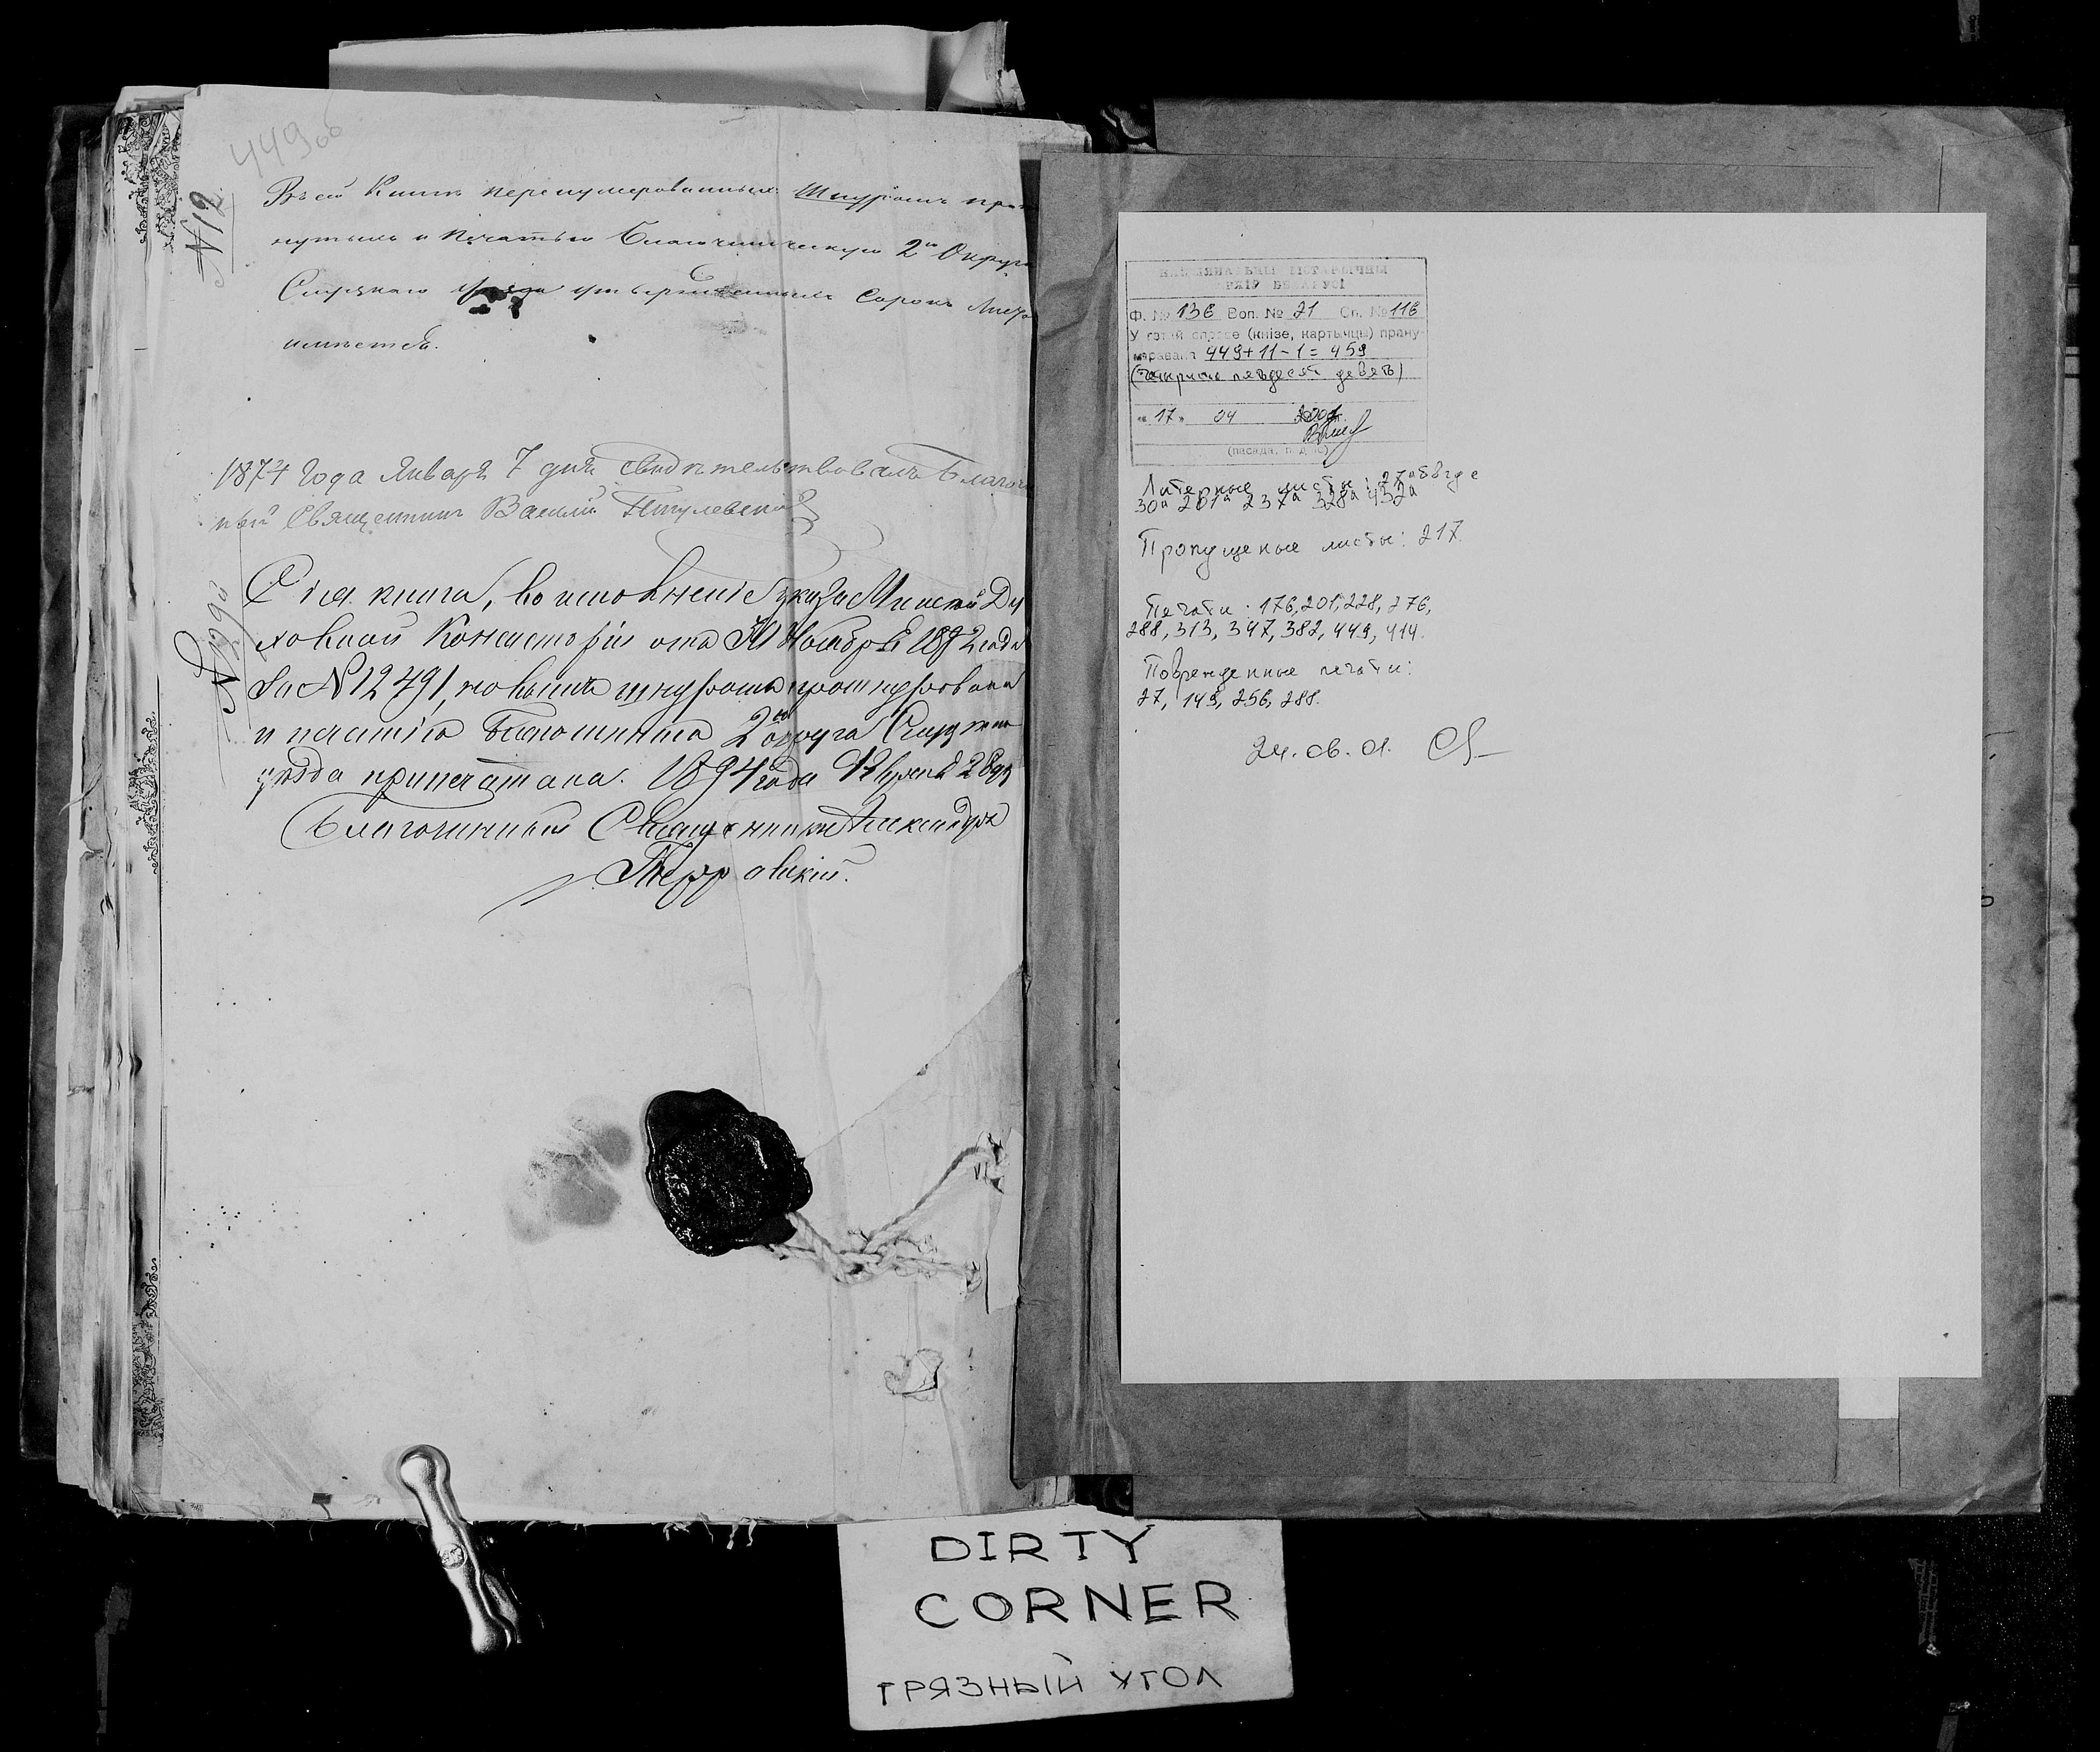 449об
N12
Въ сей Книге перенумерованныхъ Шнуромъ про
нутыхъ и печатью Благочинническую 2го Округа
Слуцкаго уезда утвержденныхъ Сорокъ Листо
имеется.
1874 года Января 7 дня свидетельствовалъ Благочи
ный Священникъ Василій
N 290
Сія книга, во исполненіе указа Минской Ду
ховной Консисторіи отъ Ноября 1892 года
за N 12491, новымъ шнуромъ прошнурована
и печатію Благочиннаго 2го округа Слуцкаго
уезда припечатана. 1894 года 28 дня
Благочинный Священникъ Александръ
НАЦЫЯНАЛЬНЫ ГІСТАРЫЧНЫ
АРХІЎ БЕЛАРУСІ
Ф. № 136 Воп. № 21 Сп. № 116
У гэтай справе (кнізе, картычцы) прану-
меравана 449+11-1= 459
(четыреста пятьдесят девять)
" 17 " 04 2001
(пасада, подпіс)
Литерные листы: 27абвгде
30а 201а 237а 328а 432а
Пропущеные листы: 217.
Печати: 176, 201, 228, 276,
288, 313, 347, 382, 449, 414.
Поврежденные печати:
27, 149, 256, 288.
24.08.01.
DIRTY
CORNER
ГРЯЗНЫЙ УГОЛ